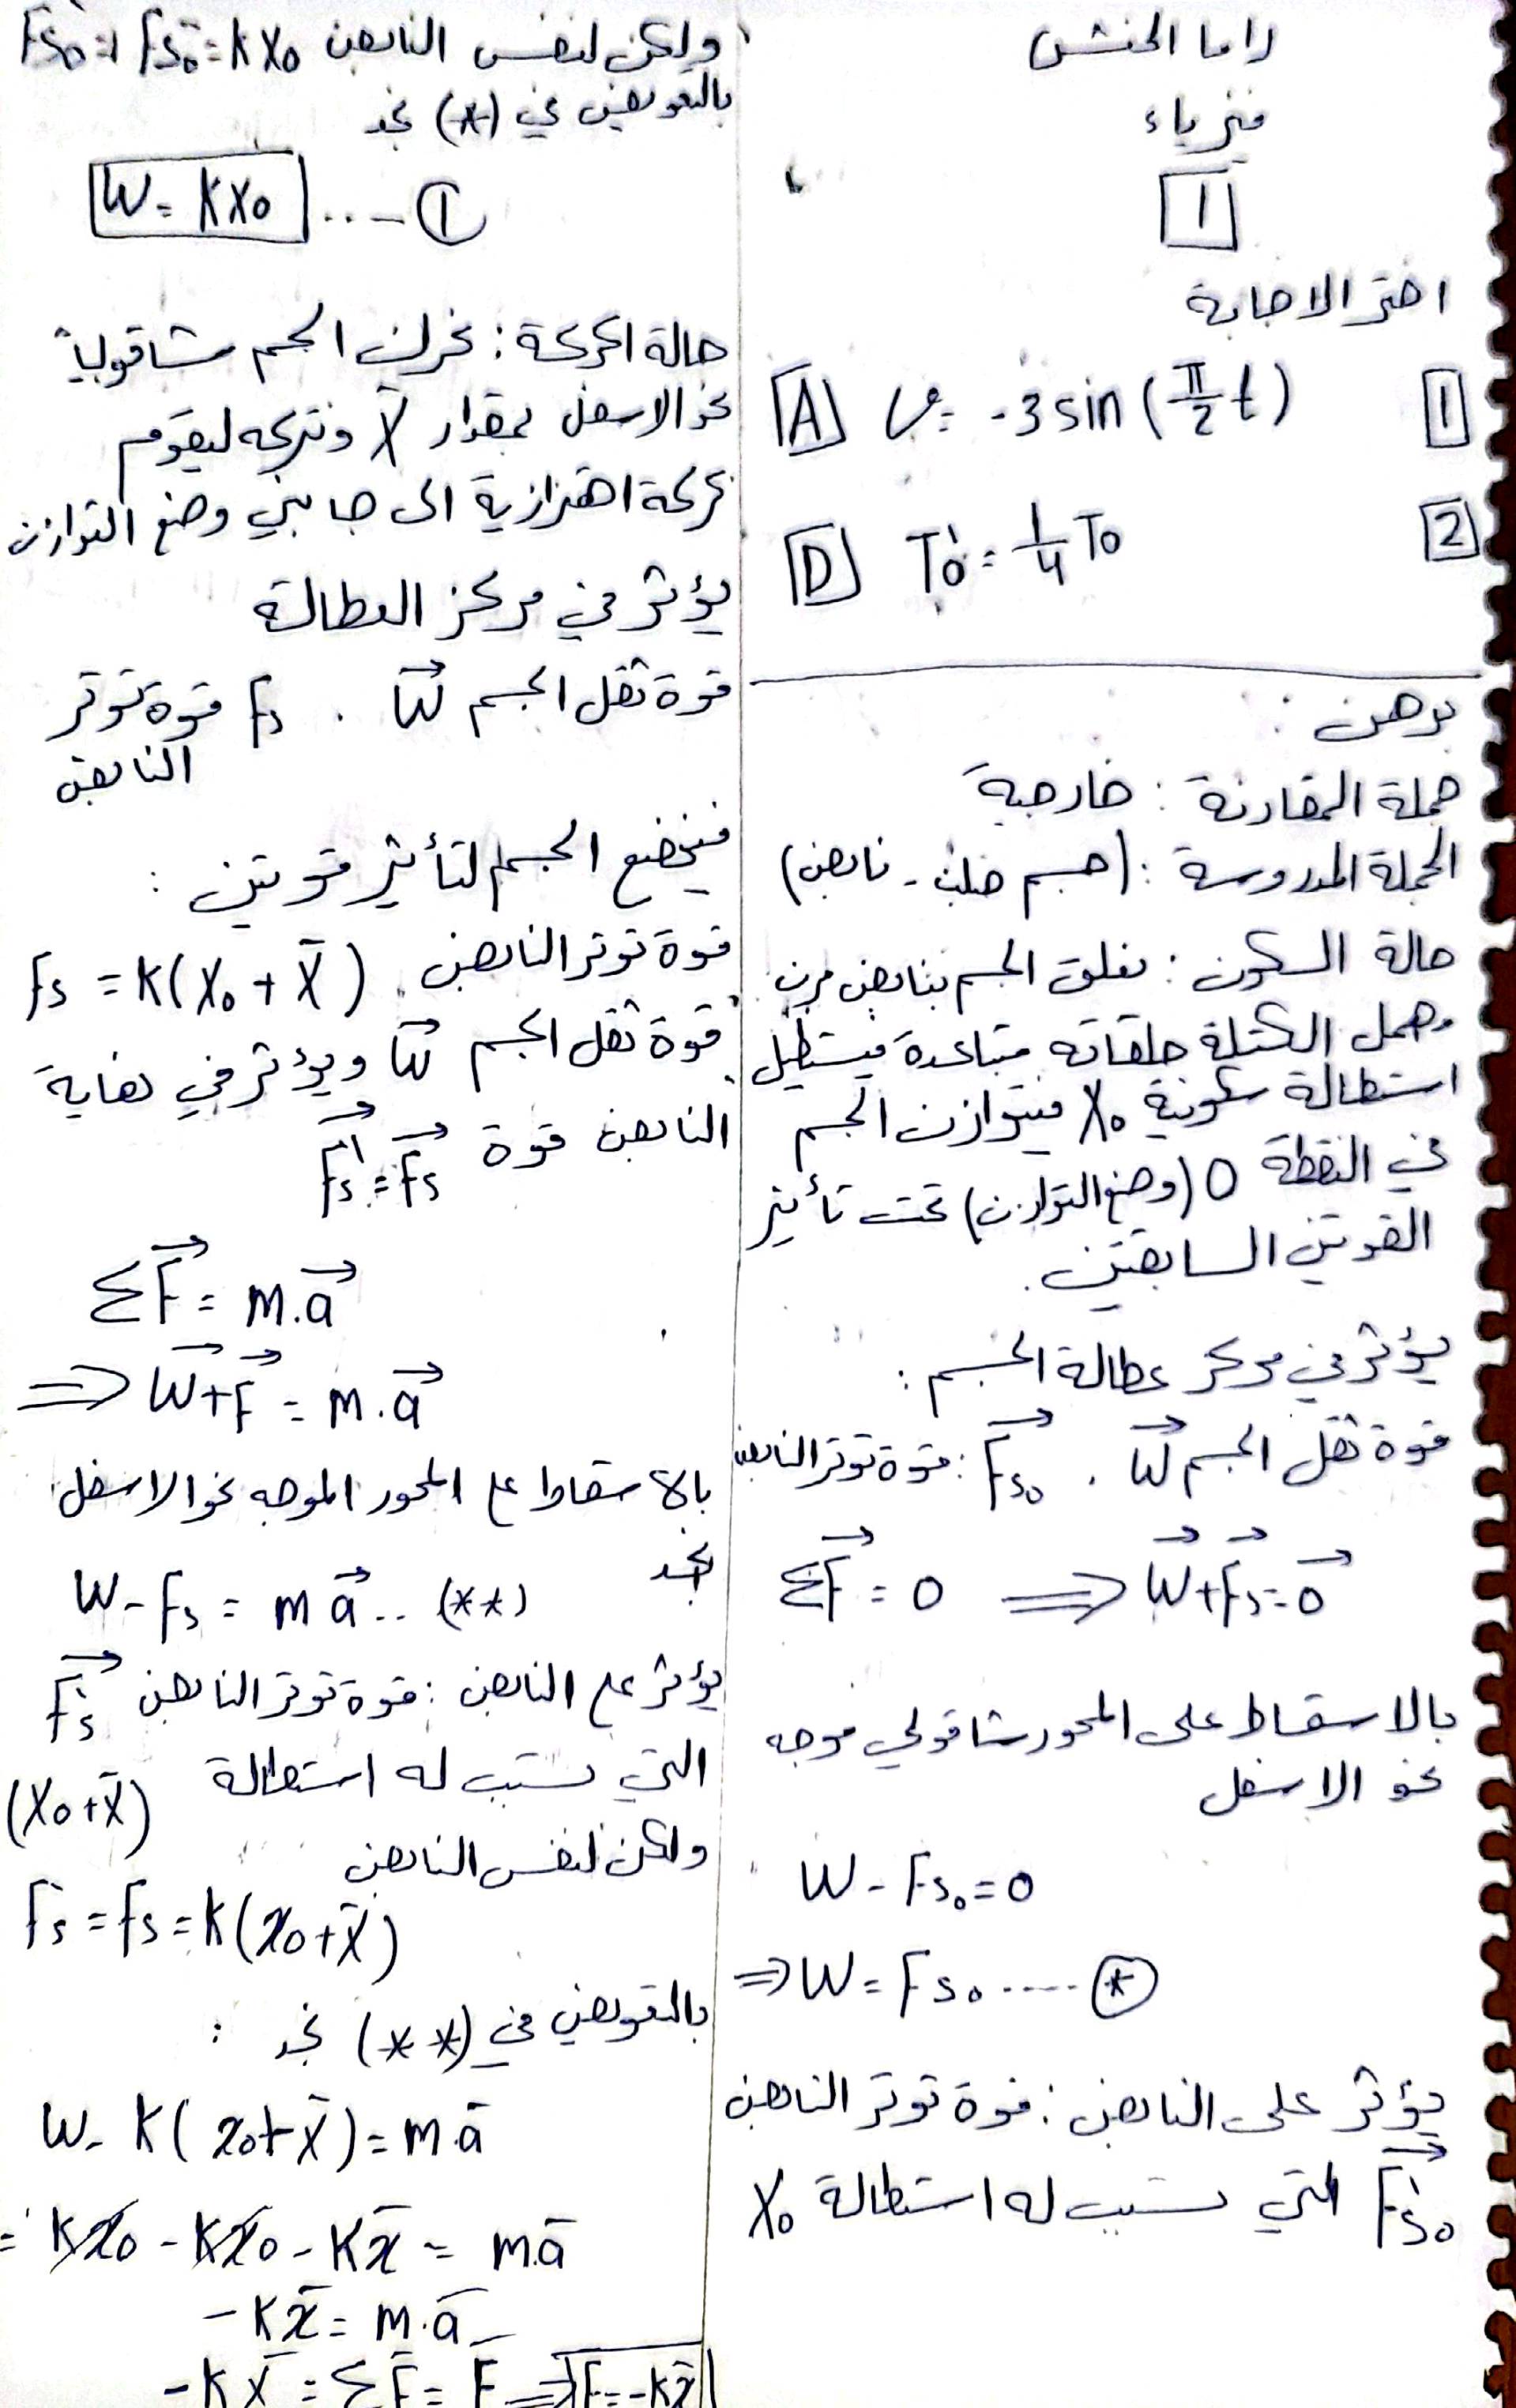 راما الحنش
فيزياء
1
اختر الاجابة
1 A v = -3 sin (π/2 t)
2 D T₀' = 1/4 T₀
برهن :
جملة المقارنة : خارجية
الجملة المدروسة : (جسم صلب - نابض)
حالة السكون : نعلق الجسم بنابض مرن
مهمل الكتلة حلقاته متباعدة فيستطيل
استطالة سكونية X₀ فيتوازن الجسم
في النقطة O (وضع التوازن) تحت تأثير
القوتين السابقتين.
يؤثر في مركز عطالة الجسم :
قوة ثقل الجسم W⃗ . F⃗s₀ : قوة توتر النابض
ΣF⃗ = 0 ⟹ W⃗ + F⃗s = 0⃗
بالاسقاط على المحور شاقولي موجه
نحو الاسفل
W - Fs₀ = 0
⇒ W = Fs₀ ..... (*)
يؤثر على النابض : قوة توتر النابض
F⃗s₀' التي تسبب له استطالة X₀
ولكن لنفس النابض Fs₀' = Fs₀ = k X₀
بالتعويض في (*) نجد
W = k X₀ ... ①
حالة الحركة : نحرك الجسم شاقولياً
نحو الاسفل بمقدار X̄ ونتركه ليقوم
بحركة اهتزازية الى جانبي وضع التوازن
يؤثر في مركز العطالة
قوة ثقل الجسم W⃗ . Fs قوة توتر
النابض
فيخضع الجسم لتأثير قوتين :
قوة توتر النابض Fs = k(X₀ + X̄)
قوة ثقل الجسم W⃗ ويؤثر في نهاية
النابض قوة F⃗s' = F⃗s
ΣF⃗ = m.a⃗
⟹ W⃗ + F⃗ = m.a⃗
بالاسقاط على المحور الموجه نحو الاسفل
نجد
W - Fs = m a⃗ .. (**)
يؤثر على النابض : قوة توتر النابض F⃗s'
التي تسبب له استطالة (X₀ + X̄)
ولكن لنفس النابض
Fs' = Fs = k(x₀ + X̄)
بالتعويض في (**) نجد :
W - k(x₀ + X̄) = m.ā
= kx₀ - kx₀ - kx̄ = m.ā
-kx̄ = m.ā
-kX̄ = ΣF̄ = F̄ ⟹ F̄ = -kx̄